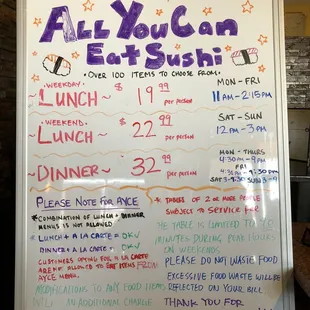 ALL YOU CAN
EAT SUSHI
OVER 100 ITEMS TO CHOOSE FROM
WEEKDAY
~ LUNCH ~ $ 19.99 PER PERSON
MON - FRI
11 AM - 2:15 PM
WEEKEND
~ LUNCH ~ $ 22.99 PER PERSON
SAT - SUN
12 PM - 3 PM
~ DINNER ~ 32.99 PER PERSON
MON - THURS
4:30 PM - 9 PM
FRI
4:30 PM - 9:30 PM
PLEASE NOTE FOR AYCE
* COMBINATION OF LUNCH + DINNER
MENUS IS NOT ALLOWED
* LUNCH + A LA CARTE = OK ✓
DINNER + A LA CARTE = OK ✓
CUSTOMERS OPTING FOR A LA CARTE
ARENT ALLOWED TO EAT ITEMS FROM
AYCE MENU
MODIFICATIONS TO ANY FOOD ITEMS
ADDITIONAL CHARGE
* OF 2 OR MORE PEOPLE
SUBJECT TO SERVICE FEE
TABLE IS LIMITED TO
MINUTES DURING PEAK HOURS
ON WEEKENDS
PLEASE DO NOT WASTE FOOD
EXCESSIVE FOOD WASTE WILL BE
REFLECTED ON YOUR BILL
THANK YOU FOR